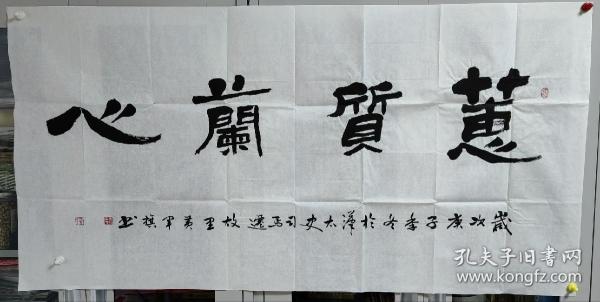 蕙質蘭心
歲次庚子季冬於漢太史司馬遷故里黄军书
孔夫子旧书网
www.kongfz.com